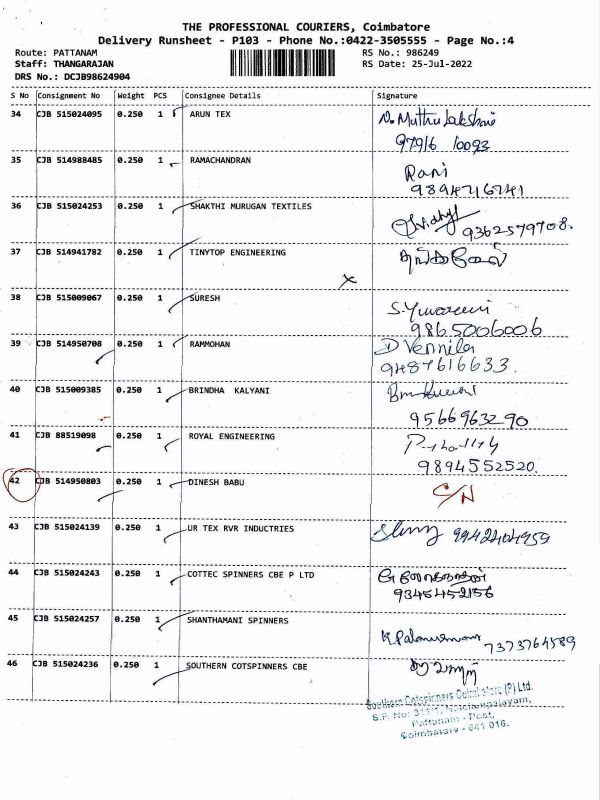 THE PROFESSIONAL COURIERS, Coimbatore
Delivery Runsheet - P103 - Phone No.:0422-3505555 - Page No.:4
Route: PATTANAM RS No.: 986249
Staff: THANGARAJAN RS Date: 25-Jul-2022
DRS No.: DCJB98624904
S No Consignment No Weight PCS Consignee Details Signature
34 CJB 515024095 0.250 1 ARUN TEX N. Muthu Lakshmi
97916 10093
35 CJB 514988485 0.250 1 RAMACHANDRAN Rani
9894716741
36 CJB 515024253 0.250 1 SHAKTHI MURUGAN TEXTILES
9362579708.
37 CJB 514941782 0.250 1 TINYTOP ENGINEERING
38 CJB 515009067 0.250 1 SURESH
9865006006
39 CJB 514950708 0.250 1 RAMMOHAN D Vennila
9487616633.
40 CJB 515009385 0.250 1 BRINDHA KALYANI
9566963290
41 CJB 88519098 0.250 1 ROYAL ENGINEERING
9894552520.
42 CJB 514950803 0.250 1 DINESH BABU C/N
43 CJB 515024139 0.250 1 UR TEX RVR INDUCTRIES
44 CJB 515024243 0.250 1 COTTEC SPINNERS CBE P LTD
9345452156
45 CJB 515024257 0.250 1 SHANTHAMANI SPINNERS
7373764589
46 CJB 515024236 0.250 1 SOUTHERN COTSPINNERS CBE
Southern Cotspinners Coimbatore (P) Ltd.
Pattanam - Post,
Coimbatore - 641 016.